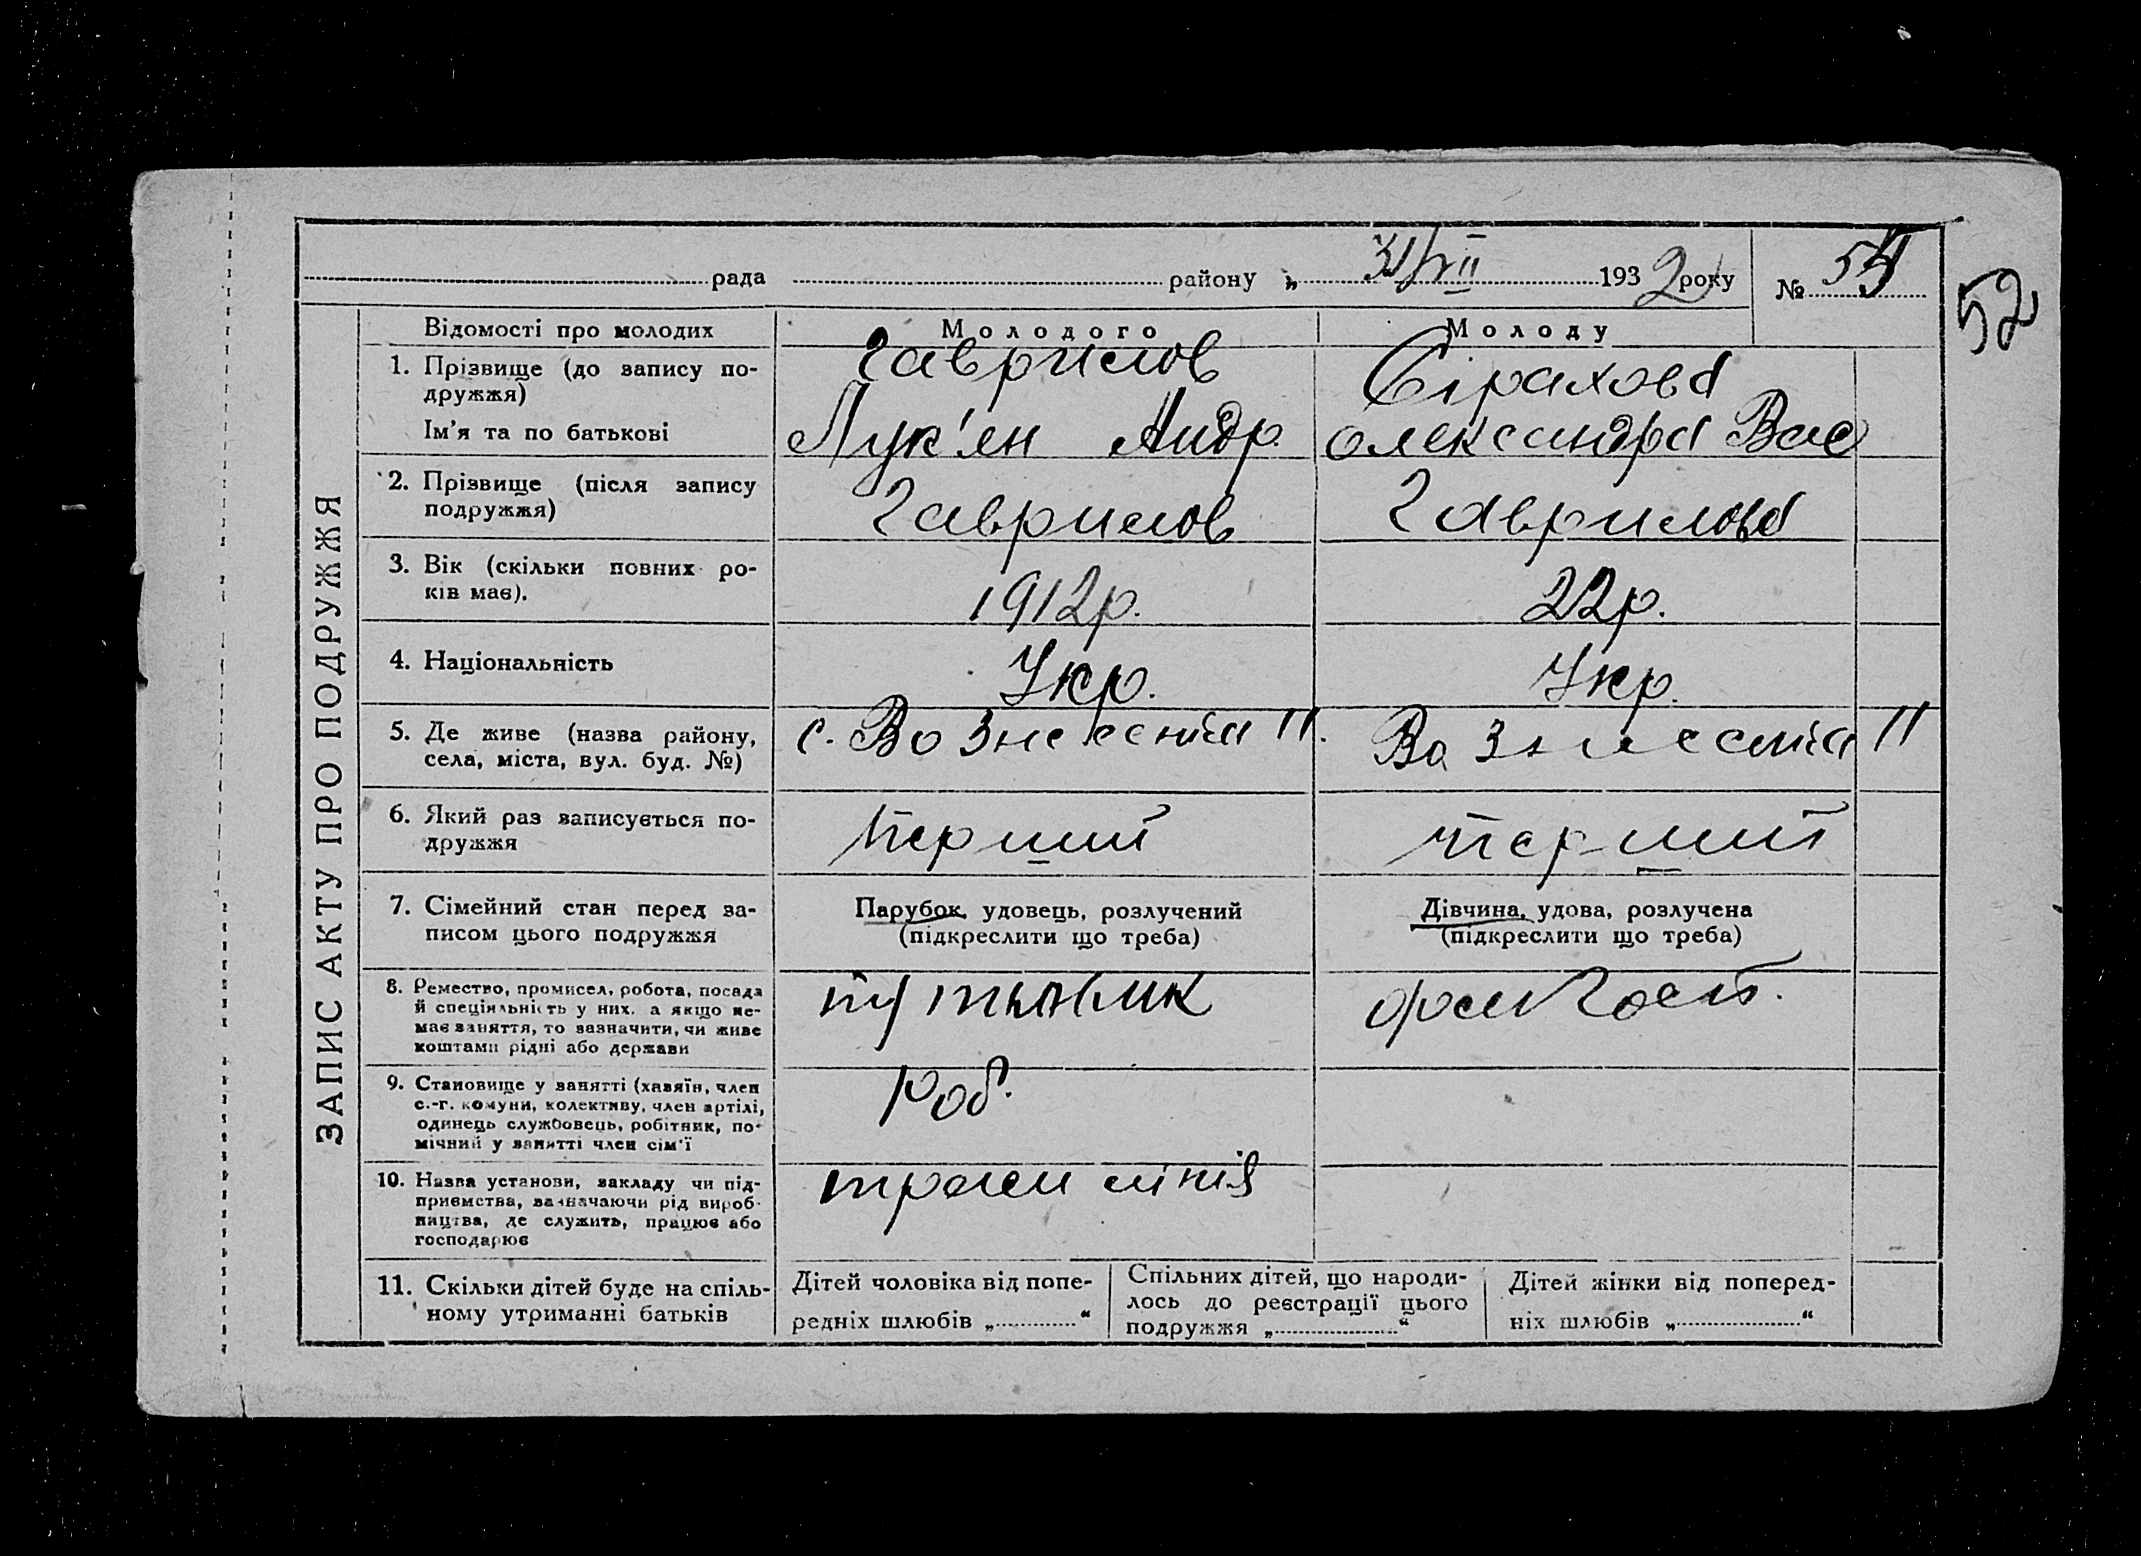 рада району „ 31/VII 1932 року № 54
52
ЗАПИС АКТУ ПРО ПОДРУЖЖЯ
Відомості про молодих Молодого Молоду
1. Прізвище (до запису по-
дружжя)
Гаврилов Сірахова
Ім'я та по батькові Лук'ян Андр. Олександра Вас
2. Прізвище (після запису
подружжя)
Гаврилов Гаврилова
3. Вік (скільки повних ро-
ків має).
1912р. 22р.
4. Національність Укр. Укр.
5. Де живе (назва району,
села, міста, вул. буд. №)
с. Вознесенка II. Вознесенка II
6. Який раз записується по-
дружжя
перший перший
7. Сімейний стан перед за-
писом цього подружжя
Парубок, удовець, розлучений
(підкреслити що треба)
Дівчина, удова, розлучена
(підкреслити що треба)
8. Ремество, промисел, робота, посада
й спеціяльність у них, а якщо не-
має заняття, то зазначити, чи живе
коштами рідні або держави
9. Становище у занятті (хазяїн, член
с.-г. комуни, колективу, член артілі,
одинець службовець, робітник, по-
мічний у занятті член сім'ї
роб.
10. Назва установи, закладу чи під-
приємства, зазначаючи рід вироб-
ництва, де служить, працює або
господарює
лінія
11. Скільки дітей буде на спіль-
ному утриманні батьків
Дітей чоловіка від попе-
редніх шлюбів „ “
Спільних дітей, що народи-
лось до реєстрації цього
подружжя „ “
Дітей жінки від поперед-
ніх шлюбів „ “